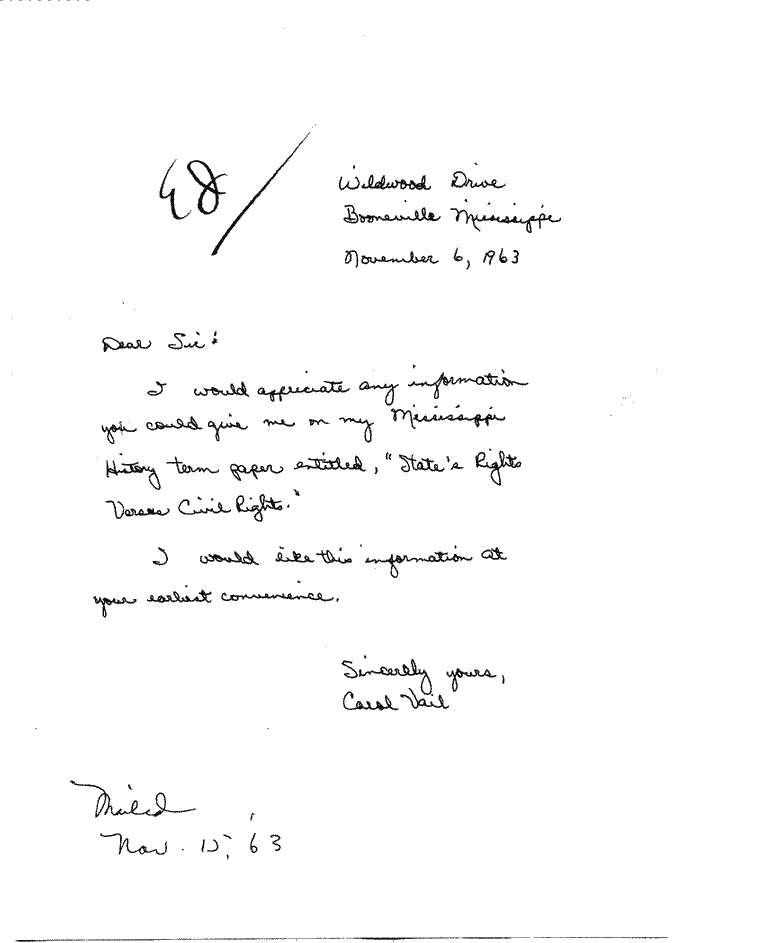 Ed/
Wildwood Drive
Booneville Mississippi
November 6, 1963
Dear Sir:
I would appreciate any information
you could give me on my Mississippi
History term paper entitled, "State's Rights
Versus Civil Rights."
I would like this information at
your earliest convenience.
Sincerely yours,
Carol Vail
Mailed
Nov. 63